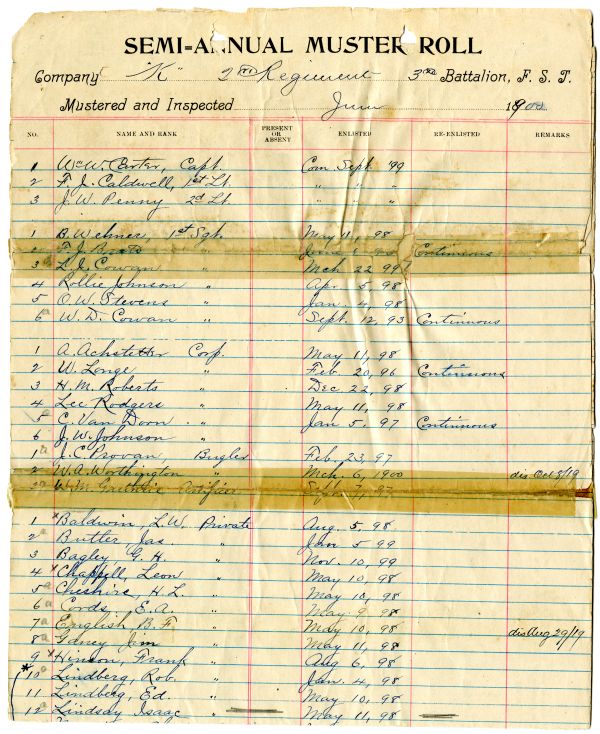 SEMI-ANNUAL MUSTER ROLL
Company "K" 2nd Regiment 3rd Battalion, F. S. T.
Mustered and Inspected June 1900
NO. NAME AND RANK PRESENT OR ABSENT ENLISTED RE-ENLISTED REMARKS
1 Wm W. Carter, Capt. Com. Sept. '99
2 F. J. Caldwell, 1st Lt. " " "
3 J. W. Penny 2d Lt. " " "
1 B. Welmer, 1st Sgt. May 11, 98
2 F. J. Continuous
3 L. J. Cowan " Mch 22 99
4 Rollie Johnson " Apr. 5, 98
5 O. W. Stevens " Jan. 4, 98
6 W. D. Cowan " Sept. 12, 93 Continuous
1 A. Achstetter Corp. May 11, 98
2 W. Longe " Feb. 20, 96 Continuous
3 H. M. Roberts " Dec 22, 98
4 Lee Rodgers " May 11, 98
5 C. Van Doon " Jan 5, 97 Continuous
6 J. W. Johnson "
1 J. C. Provan, Bugler Feb. 23, 97
2 W. A. Worthington " Mch 6, 1900 dis Oct 8/19
W. M. Guthrie Artificer
1 Baldwin, L. W. Private Aug. 5, 98
2 Butler, Jas. " Jan 5 99
3 Bagley G. H. " Nov. 10, 99
4 Chappell, Leon " May 10, 98
5 Cheshire, H. L. " May 10, 98
6 Cords, E. A. " May 9 98
7 English B. F. " May 10, 98 dis Aug 29/19
8 Gidney Jim " May 11, 98
9 Hinson, Frank " Aug 6, 98
10 Lindberg, Rob. " Jan. 4, 98
11 Lindberg, Ed. " May 10, 98
12 Lindsay Isaac " May 11, 98